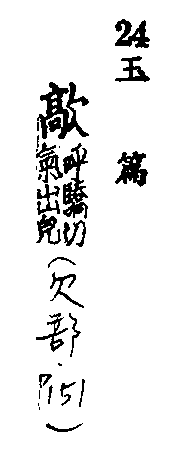 24玉篇
歊呼驕切
氣出皃(欠部·P151)